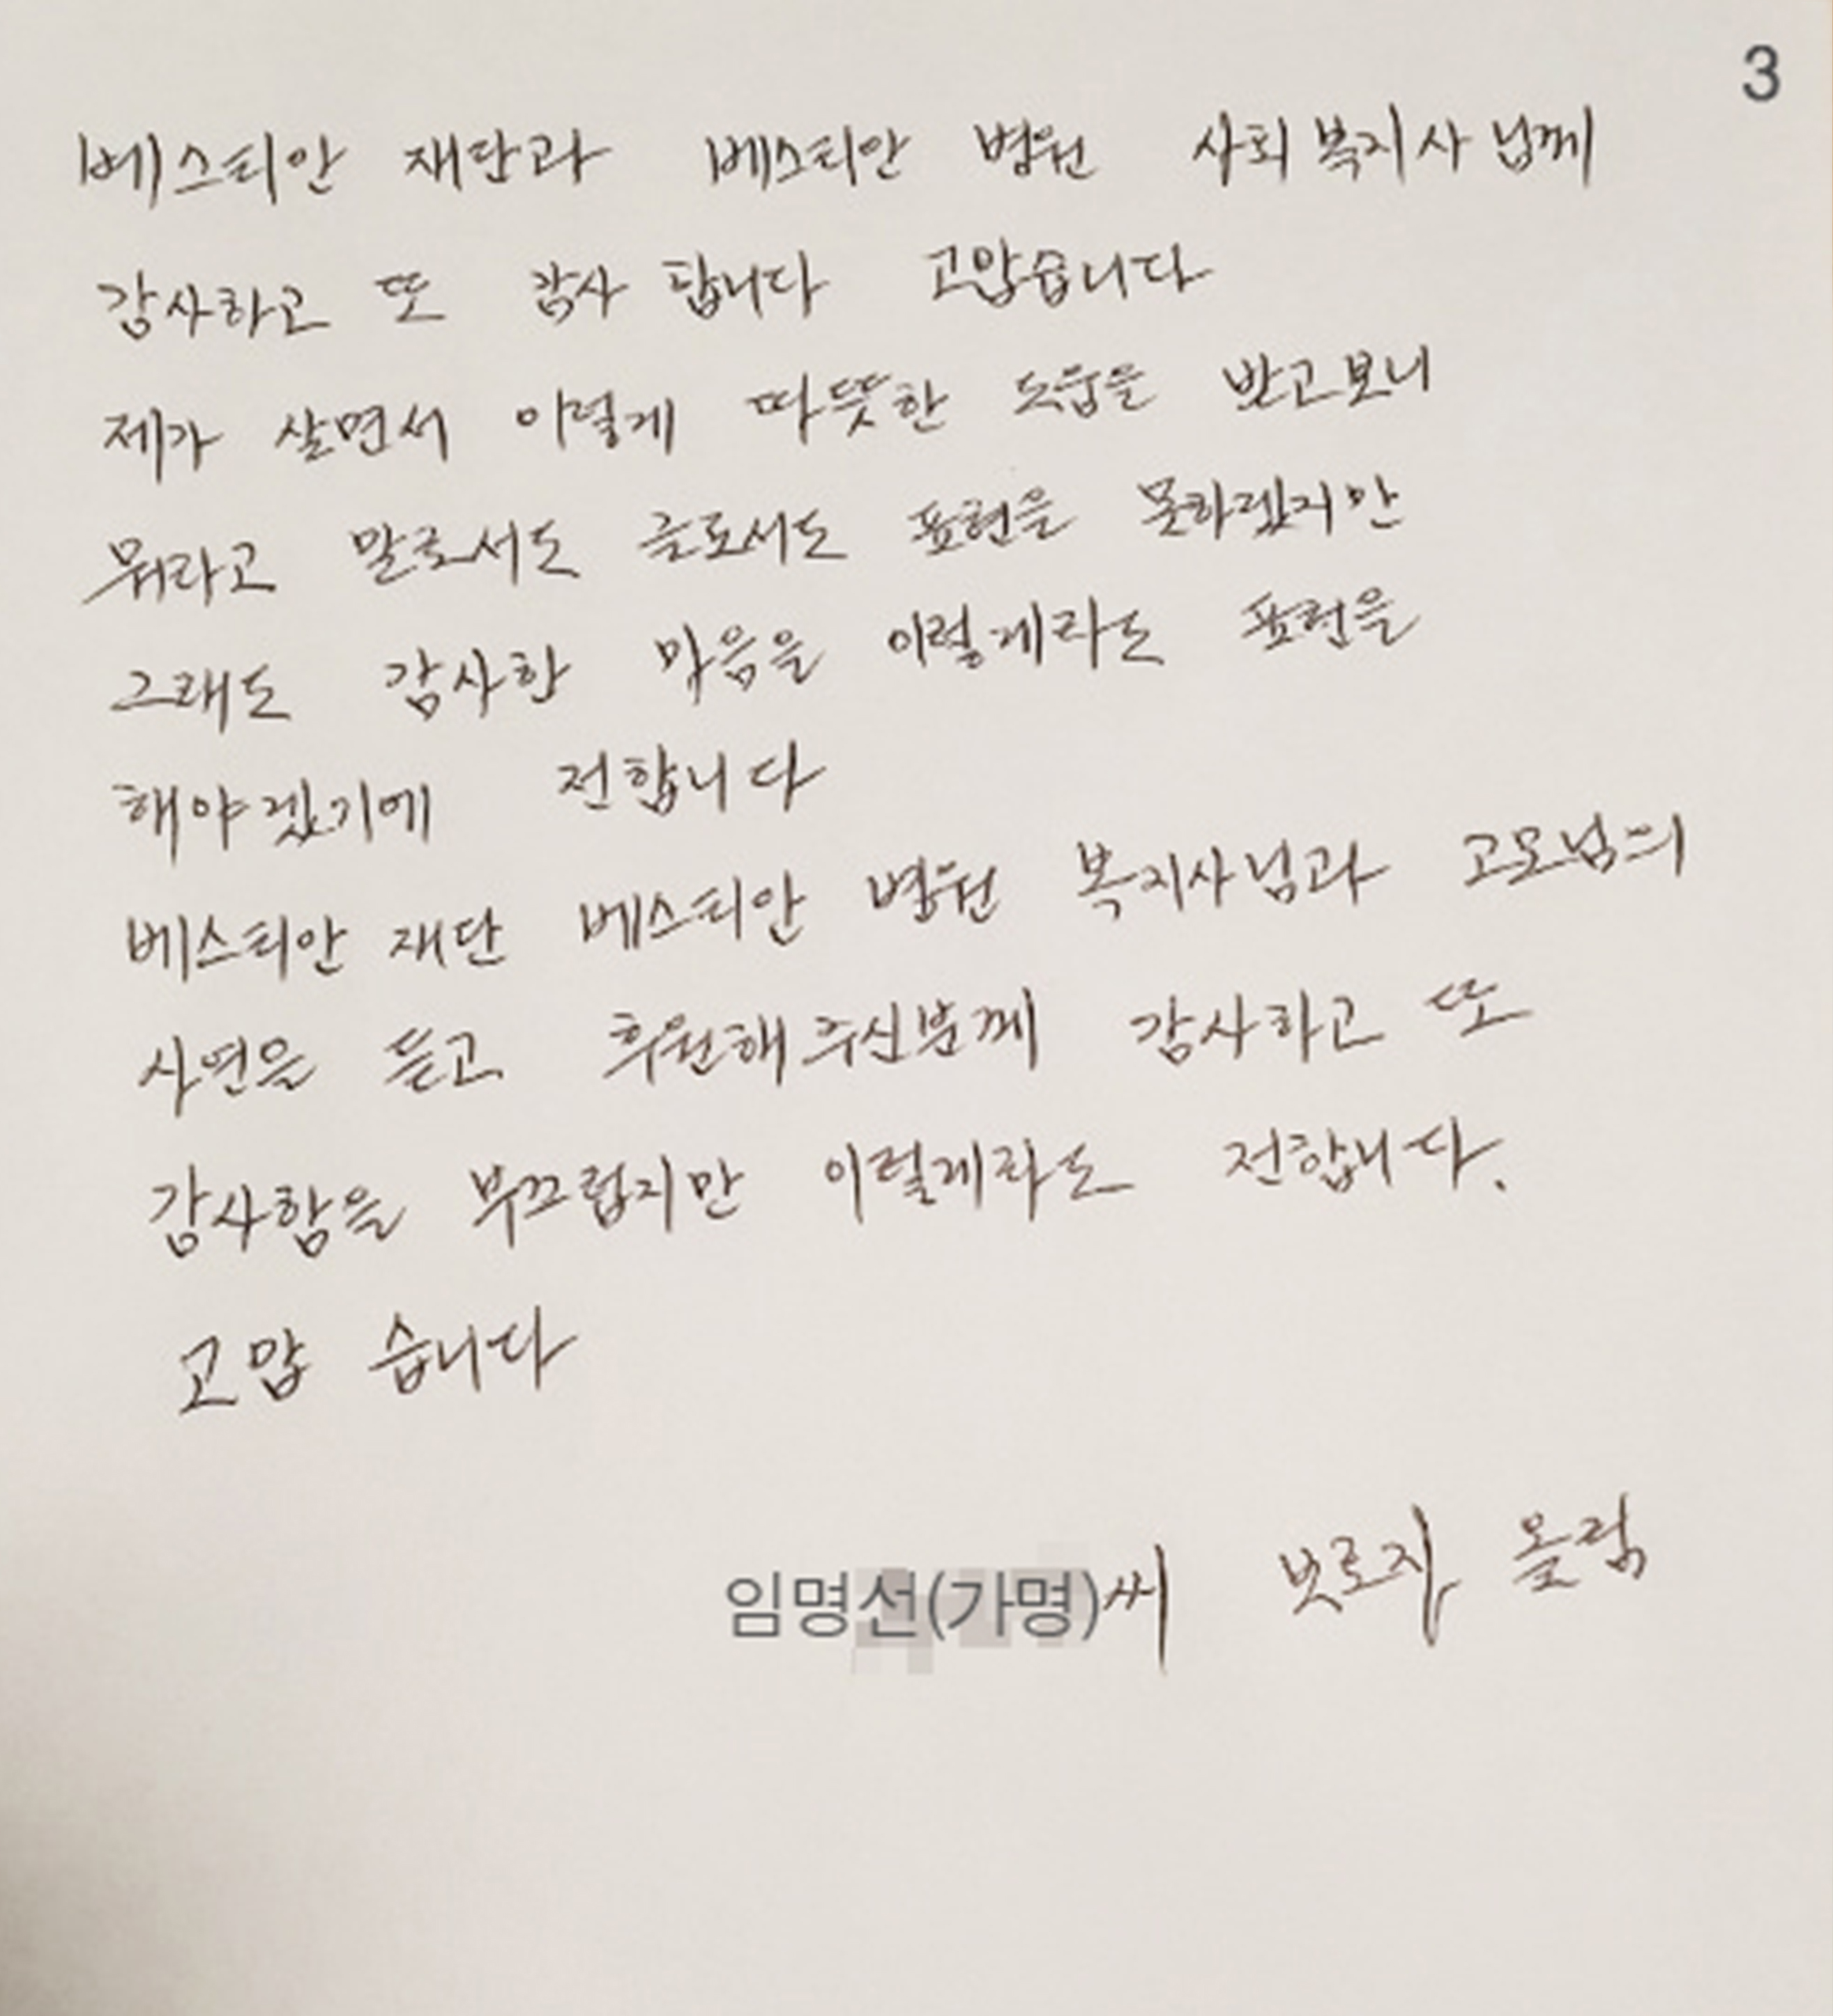 3
베스티안 재단과 베스티안 병원 사회복지사님께
감사하고 또 감사 합니다 고맙습니다
제가 살면서 이렇게 따뜻한 도움을 받고보니
뭐라고 말로서도 글로서도 표현을 못하겠지만
그래도 감사한 마음을 이렇게라도 표현을
해야겠기에 전합니다
베스티안 재단 베스티안 병원 복지사님과 고모님의
사연을 듣고 후원해주신분께 감사하고 또
감사함을 부끄럽지만 이렇게라도 전합니다.
고맙 습니다
임명선(가명)씨 보호자 올림